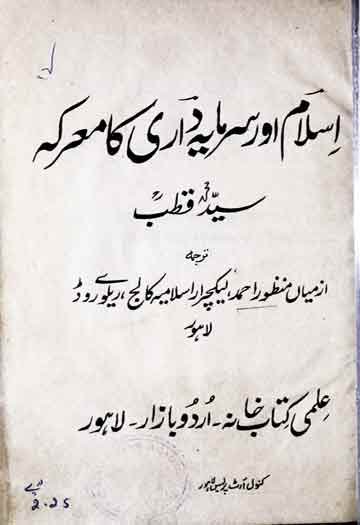 اسلام اور سرمایہ داری کا معرکہ
سید قطبؒ
ترجمہ
از میاں منظور احمد، لیکچرار اسلامیہ کالج، ریلوے روڈ
لاہور
علمی کتاب خانہ - اردو بازار - لاہور
کنول آرٹ پریس لاہور
2.25